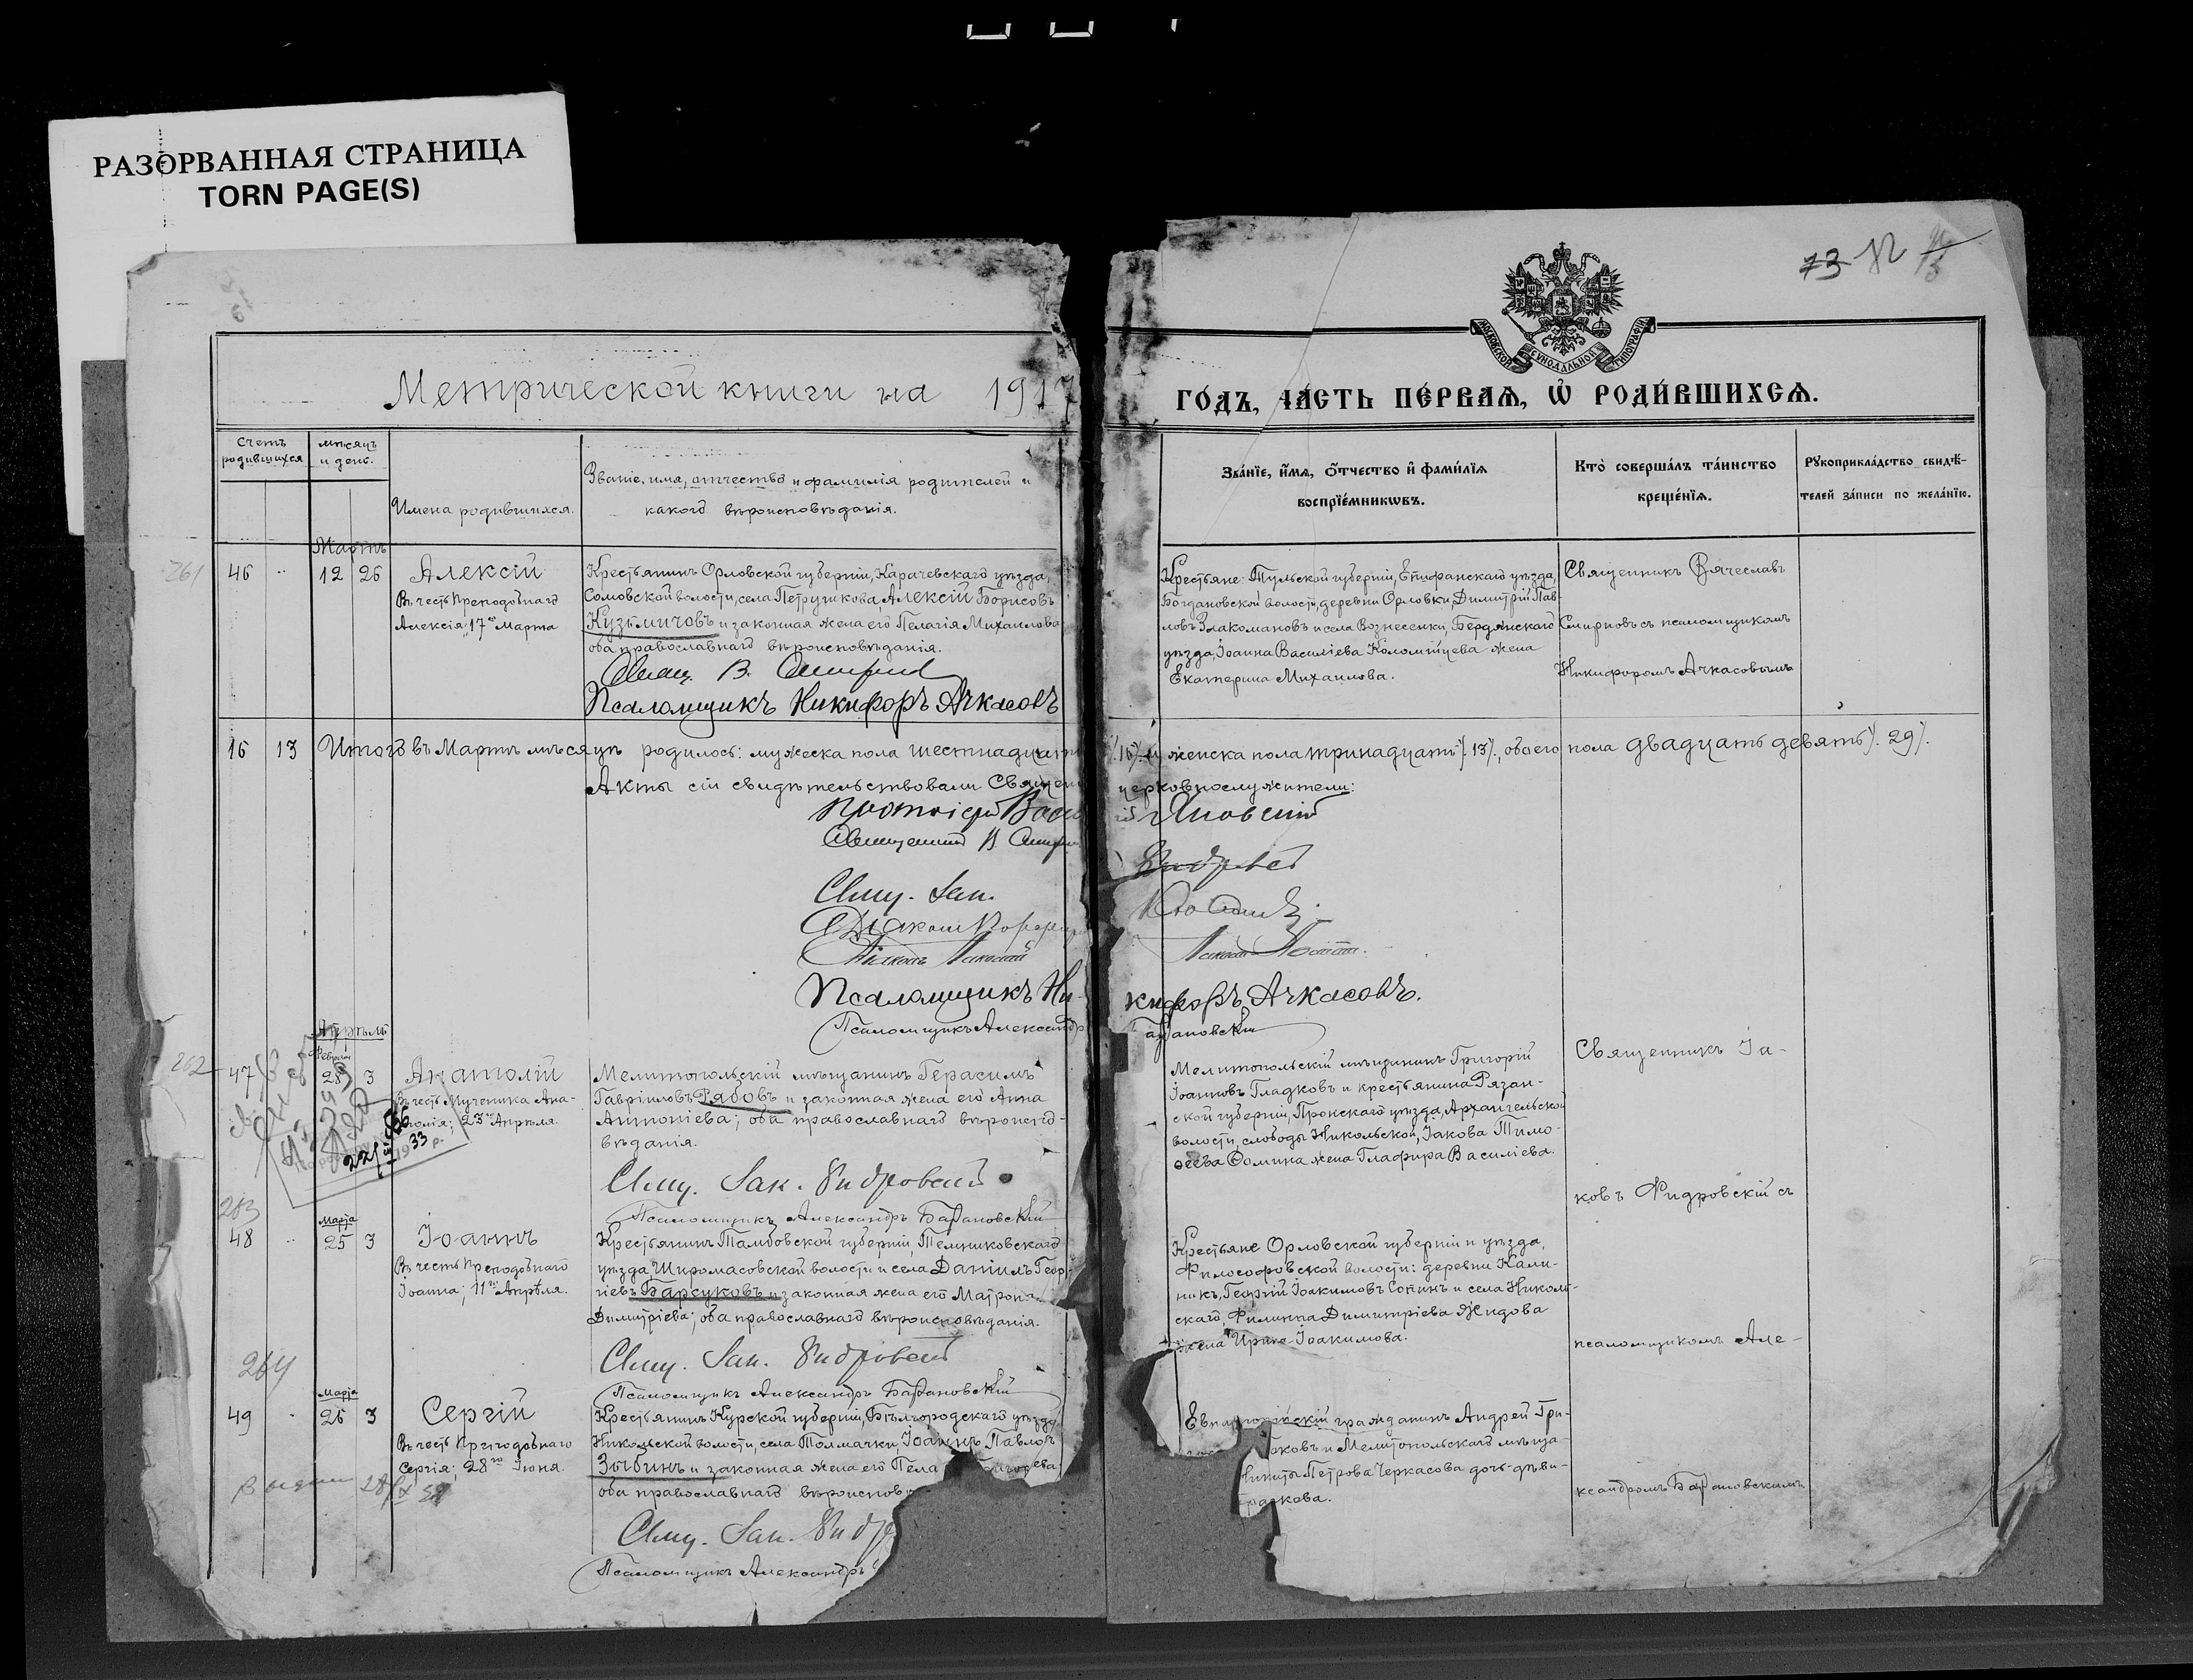 РАЗОРВАННАЯ СТРАНИЦА
TORN PAGE(S)
73
МОСКОВСКОЙ СѴНОДАЛЬНОЙ ТИПОГРАФІИ
Метрической книги на 1917
ГОДЪ, ЧАСТЬ ПЕРВАЯ, Ѡ РОДИВШИХСЯ.
Счетъ родившихся
мѣсяцъ и день.
Имена родившихся.
Званіе, имя, отчество и фамилія родителей и
какого вѣроисповѣданія.
Званіе, имя, отчество и фамилія
воспріемниковъ.
Кто совершалъ таинство
крещенія.
Рукоприкладство свидѣ-
телей записи по желанію.
Мартъ
261
46 12 26 Алексій
Въ честь Преподобнаго
Алексія; 17го Марта
Крестьянинъ Орловской губерніи, Карачевскаго уѣзда,
Сомовской волости, села Петрушкова, Алексій Борисовъ
Кузьмичовъ и законная жена его Пелагія Михаилова
оба православнаго вѣроисповѣданія.
Свящ. В. Смирнов
Псаломщикъ Никифоръ Ачкасовъ
Крестьяне: Тульской губерніи, Епифанскаго уѣзда,
Богдановской волости, деревни Орловки, Димитрій Пав-
ловъ Злакомановъ и села Вознесенки, Бердянскаго
уѣзда, Іоанна Василіева Коломійцева жена
Екатерина Михаилова.
Священникъ Вячеславъ
Смирновъ съ псаломщикомъ
Никифоромъ Ачкасовымъ
16 13 Итого въ Мартѣ мѣсяцѣ родилось: мужеска пола шестнадцать /.16/. и женска пола тринадцать /.13/., обоего пола двадцать девять /. 29/.
Акты сіи свидѣтельствовали Священно церковнослужители:
Протоіерей Васи ій Яновскій
Священникъ В. Смирн
Свящ. Іак. Фидровскій
Діаконъ
Псаломщикъ Ни- кифоръ Ачкасовъ.
Псаломщикъ Александръ Баdановскій
Апрѣль
262
Февраля
47 28 3 Анатолій
Въ честь Мученика Ана-
толія; 23го Апрѣля.
22/ 1933 р.
Мелитопольскій мѣщанинъ Герасимъ
Гавріиловъ Рябовъ и законная жена его Анна
Антоніева; оба православнаго вѣроиспо-
вѣданія.
Свящ. Іак. Фидровскій
Псаломщикъ Александръ
Мелитопольскій мѣщанинъ Григорій
Іоанновъ Гладковъ и крестьянина Рязан-
ской губерніи, Пронскаго уѣзда, Архангельской
волости, слободы Никольской, Іакова Тимо-
ѳеева Ѳомина жена Глафира Василіева.
Священникъ Іа-
ковъ Фидровскій съ
263
Марта
48 25 3 Іоаннъ
Въ честь Преподобнаго
Іоанна; 11го Апрѣля.
Крестьянинъ Тамбовской губерніи, Темниковскаго
уѣзда Широмасовской волости и села Даніилъ Геор-
гіевъ Барсуковъ и законная жена его Матрона
Димитріева; оба православнаго вѣроисповѣданія.
Свящ. Іак. Фидровскій
Псаломщикъ Александръ
Крестьяне Орловской губерніи и уѣзда,
Философовской волости: деревни Кали-
никъ, Георгій Іоакимовъ Сопинъ и села Николь-
скаго, Филиппа Димитріева Жидова
жена Ирина Іоакимова.
псаломщикомъ Але-
264
Марта
49 26 3 Сергій
Въ честь Преподобнаго
Сергія; 28го Іюня.
Крестьянинъ Курской губерніи, Бѣлгородскаго уѣзда,
Никольской волости, села Толмачки, Іоаннъ Павлов
Зыбинъ и законная жена его Пела
оба православнаго вѣроиспов
Свящ. Іак. Фидр
Псаломщикъ Александръ
Евпаторійскій гражданинъ Андрей Гри-
аковъ и Мелитопольскаго мѣща-
Никиты Петрова Черкасова дочь-дѣви-
ксандромъ